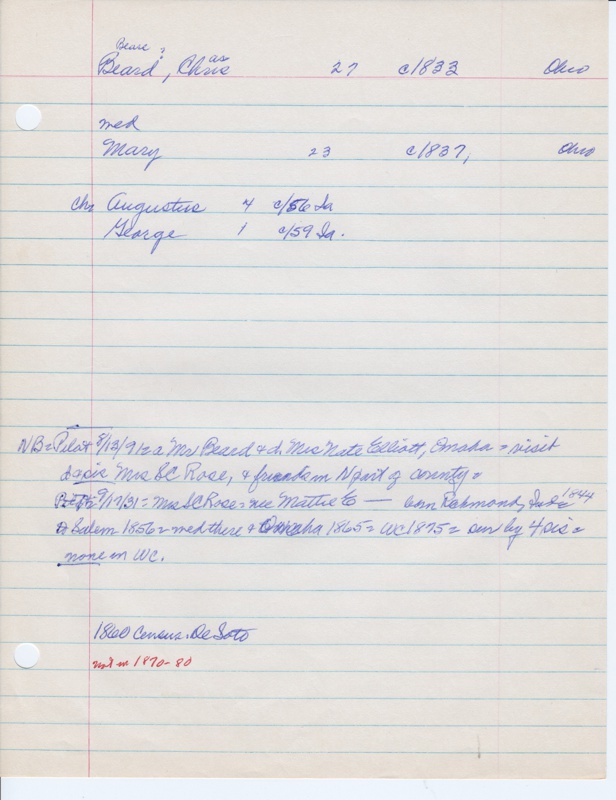 Beare ?
Beard, Chris as 27 c/1833 Ohio
med
Mary 23 c/1837, Ohio
ch= Augustus 4 c/56 Ia
George 1 c/59 Ia.
NB= Pilot 8/13/91= a Mr Beard & d. Mrs Nate Elliott, Omaha = visit
sis Mrs SC Rose, & friends in N part of county=
9/17/31= Mrs SC Rose= nee Mattie E — born Richmond, Ind= 1844
Salem 1856= med there & Omaha 1865= WC 1875= sur by 4 sis=
none in WC.
1860 Census. De Soto
not in 1870-80